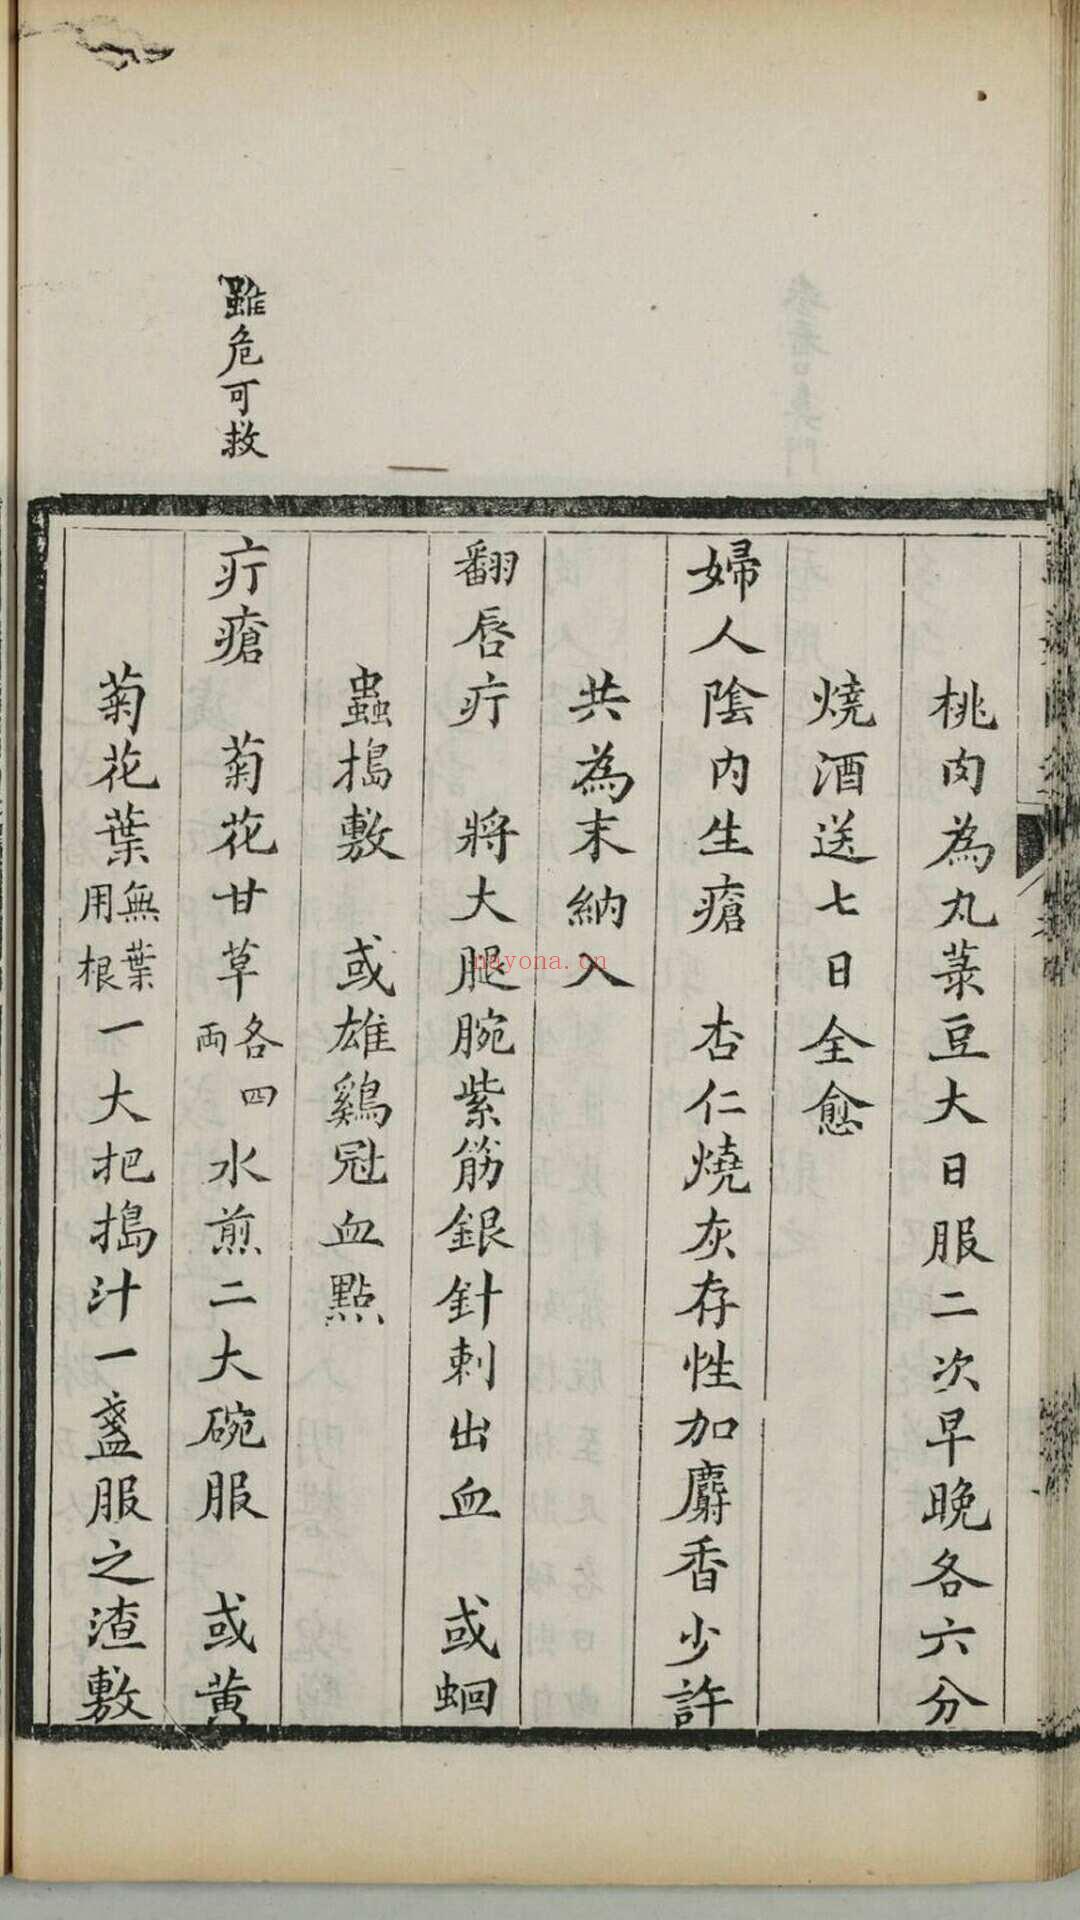 桃肉為丸菉豆大日服二次早晚各六分
燒酒送七日全愈
婦人陰內生瘡　杏仁燒灰存性加麝香少許
共為末納入
翻唇疔　將大腿腕紫筋銀針刺出血　或蛔
蟲搗敷　或雄鷄冠血點
雖危可救
疔瘡　菊花甘草各四兩水煎二大碗服　或黄
菊花葉無葉用根一大把搗汁一盞服之渣敷
nayona.cn